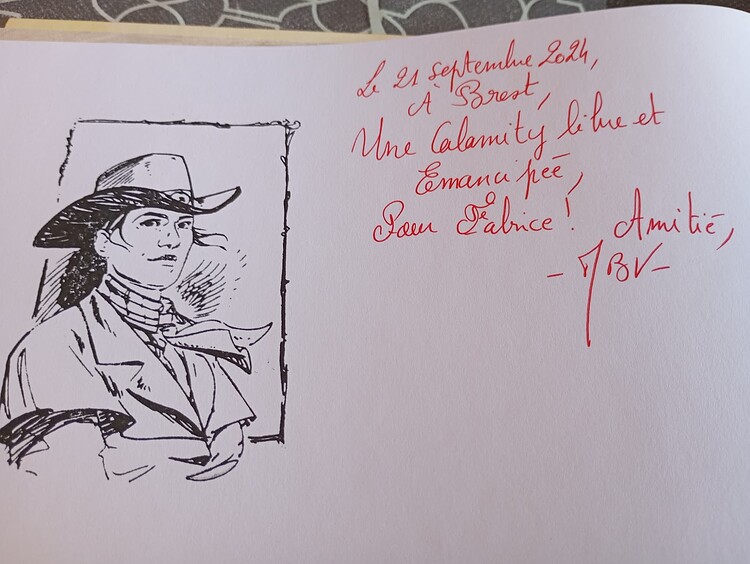 Le 21 septembre 2024,
À Brest,
Une Calamity libre et
Emancipée,
Pour Fabrice! Amitié,
- JBV -